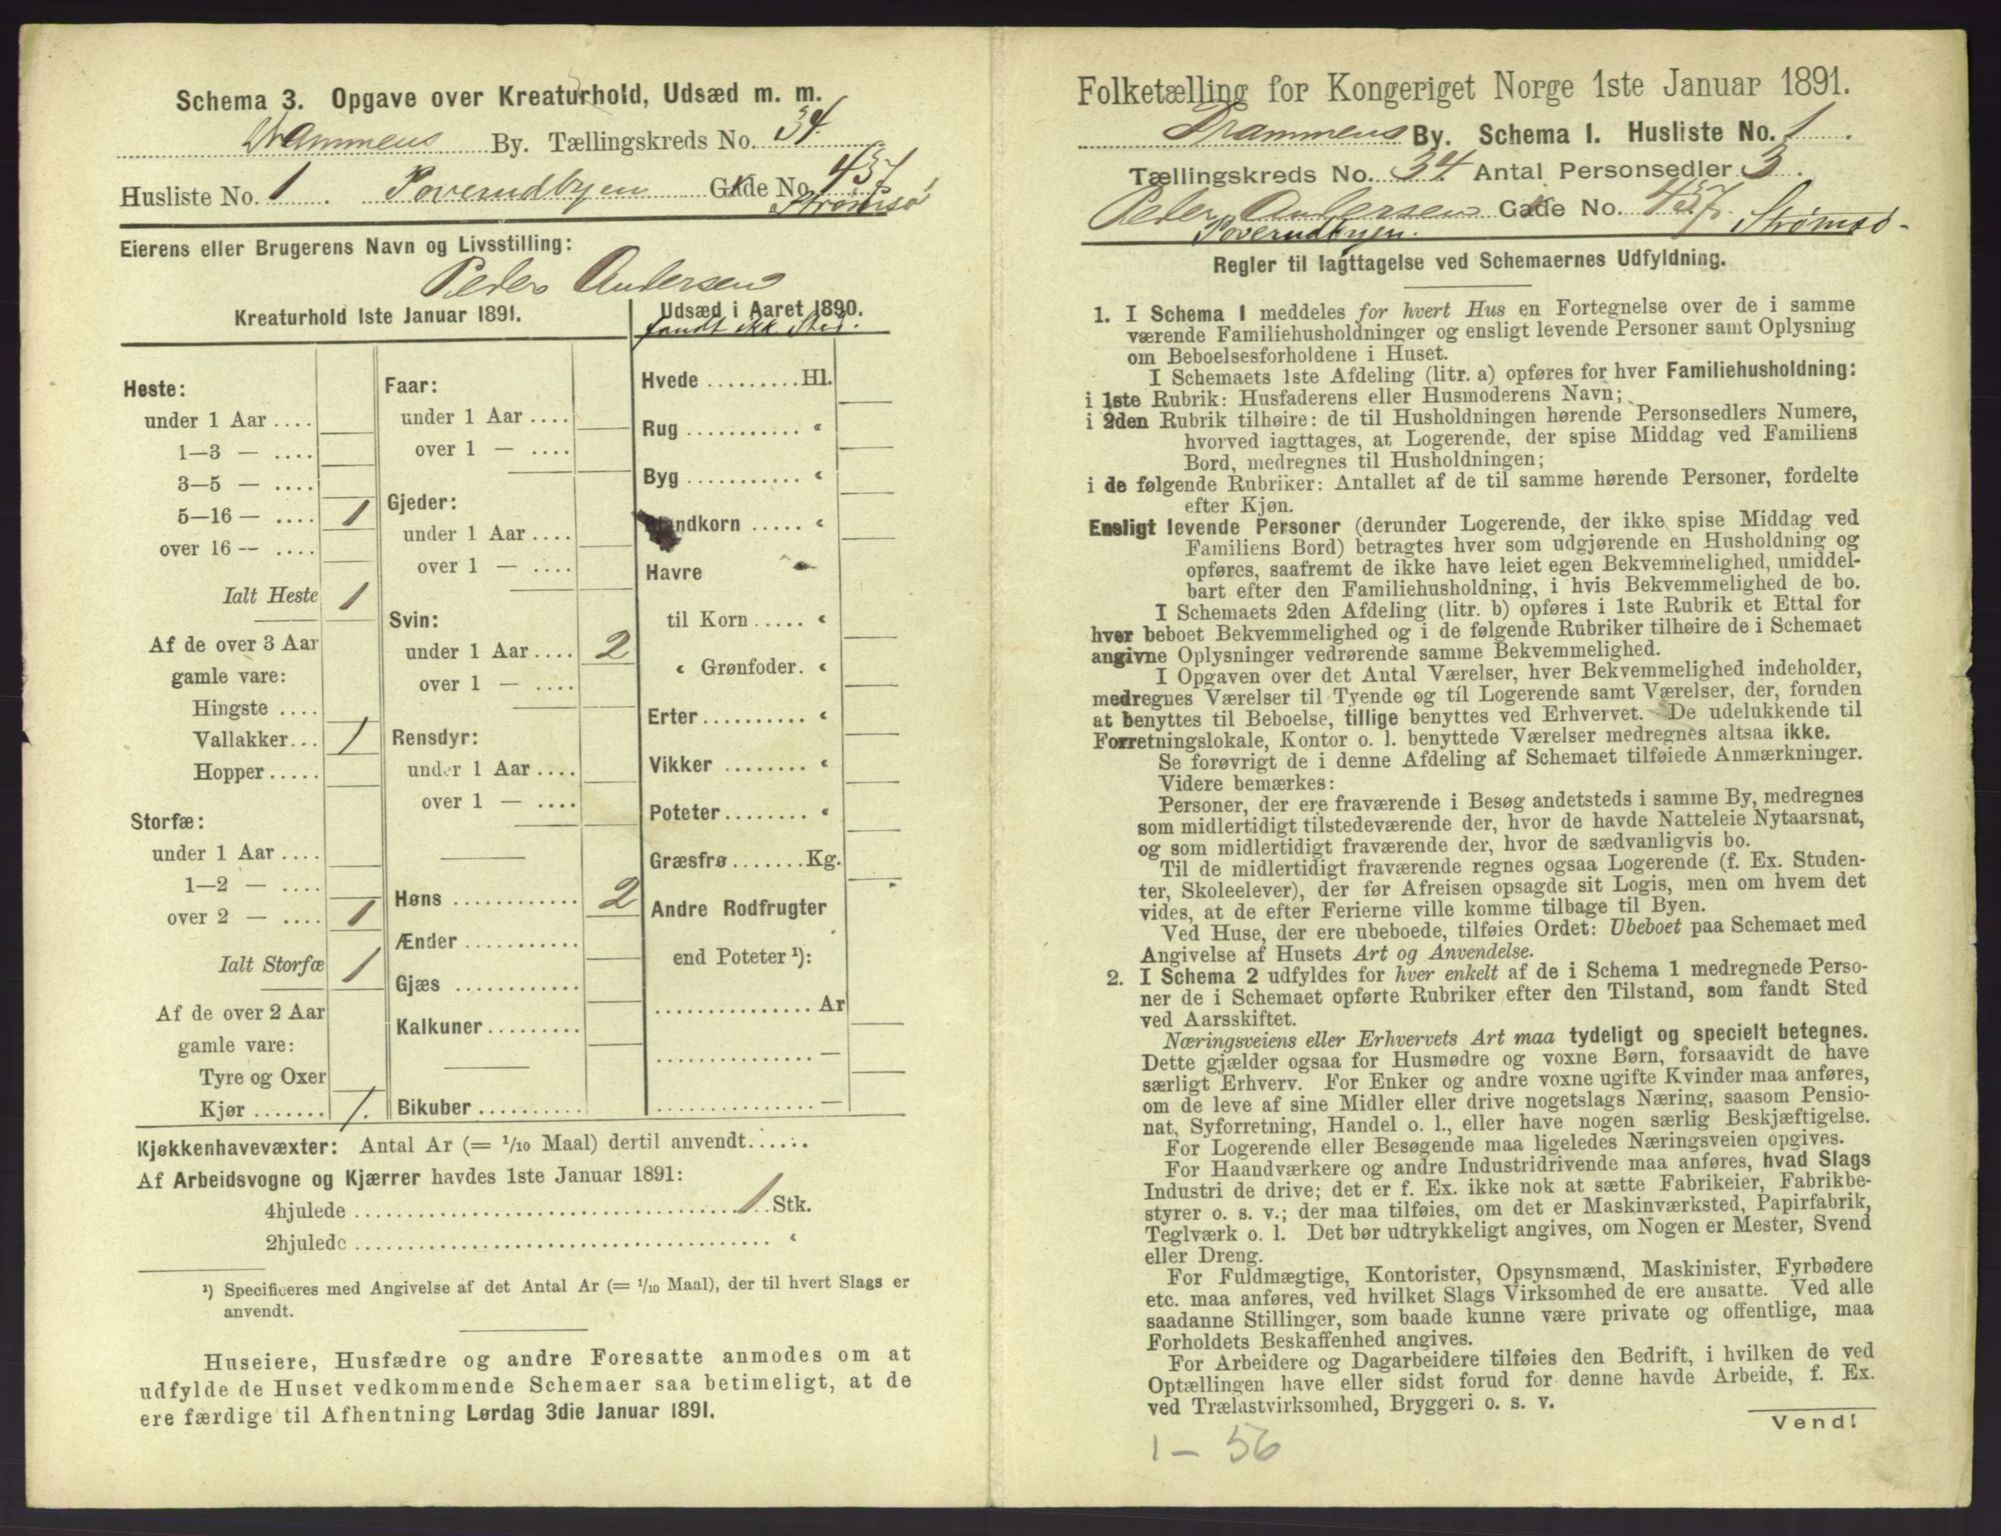 Schema 3. Opgave over Kreaturhold, Udsæd m. m.
Drammens By. Tællingskreds No. 34.
Husliste No. 1. Poverudbyen Gade No. 437
Strømsø
Eierens eller Brugerens Navn og Livsstilling:
Peder Andersen
Kreaturhold 1ste Januar 1891.
Heste:
under 1 Aar ....
1—3 — ....
3—5 — ....
5—16 — .... 1
over 16 — ....
Ialt Heste 1
Af de over 3 Aar
gamle vare:
Hingste ....
Vallakker... 1
Hopper.....
Storfæ:
under 1 Aar ....
1—2 — ....
over 2 — .... 1
Ialt Storfæ 1
Af de over 2 Aar
gamle vare:
Tyre og Oxer
Kjør ....... 1.
Faar:
under 1 Aar ....
over 1 — ....
Gjeder:
under 1 Aar ....
over 1 — ....
Svin:
under 1 Aar .... 2
over 1 — ....
Rensdyr:
under 1 Aar ....
over 1 — ....
Høns ............ 2
Ænder ...........
Gjæs ............
Kalkuner.........
Bikuber ..........
Udsæd i Aaret 1890.
fandt ikk Sted.
Hvede .........Hl.
Rug ........... "
Byg ........... "
Blandkorn ..... "
Havre
til Korn ..... "
" Grønfoder. "
Erter.......... "
Vikker ........ "
Poteter........ "
Græsfrø .......Kg.
Andre Rodfrugter
end Poteter ¹):
............... Ar
............... —
............... —
Kjøkkenhavevæxter: Antal Ar (= 1/10 Maal) dertil anvendt......
Af Arbeidsvogne og Kjærrer havdes 1ste Januar 1891:
4hjulede ........................................ 1 Stk.
2hjulede ........................................ "
¹) Specificeres med Angivelse af det Antal Ar (= 1/10 Maal), der til hvert Slags er
anvendt.
Huseiere, Husfædre og andre Foresatte anmodes om at
udfylde de Huset vedkommende Schemaer saa betimeligt, at de
ere færdige til Afhentning Lørdag 3die Januar 1891.
Folketælling for Kongeriget Norge 1ste Januar 1891.
Drammens By. Schema 1. Husliste No. 1.
Tællingskreds No. 34 Antal Personsedler 3.
Peder Andersen Gade No. 437. Strømsø.
Poverudbyen.
Regler til Iagttagelse ved Schemaernes Udfyldning.
1. I Schema 1 meddeles for hvert Hus en Fortegnelse over de i samme
værende Familiehusholdninger og ensligt levende Personer samt Oplysning
om Beboelsesforholdene i Huset.
I Schemaets 1ste Afdeling (litr. a) opføres for hver Familiehusholdning:
i 1ste Rubrik: Husfaderens eller Husmoderens Navn;
i 2den Rubrik tilhøire: de til Husholdningen hørende Personsedlers Numere,
hvorved iagttages, at Logerende, der spise Middag ved Familiens
Bord, medregnes til Husholdningen;
i de følgende Rubriker: Antallet af de til samme hørende Personer, fordelte
efter Kjøn.
Ensligt levende Personer (derunder Logerende, der ikke spise Middag ved
Familiens Bord) betragtes hver som udgjørende en Husholdning og
opføres, saafremt de ikke have leiet egen Bekvemmelighed, umiddel-
bart efter den Familiehusholdning, i hvis Bekvemmelighed de bo.
I Schemaets 2den Afdeling (litr. b) opføres i 1ste Rubrik et Ettal for
hver beboet Bekvemmelighed og i de følgende Rubriker tilhøire de i Schemaet
angivne Oplysninger vedrørende samme Bekvemmelighed.
I Opgaven over det Antal Værelser, hver Bekvemmelighed indeholder,
medregnes Værelser til Tyende og til Logerende samt Værelser, der, foruden
at benyttes til Beboelse, tillige benyttes ved Erhvervet. De udelukkende til
Forretningslokale, Kontor o. l. benyttede Værelser medregnes altsaa ikke.
Se forøvrigt de i denne Afdeling af Schemaet tilføiede Anmærkninger.
Videre bemærkes:
Personer, der ere fraværende i Besøg andetsteds i samme By, medregnes
som midlertidigt tilstedeværende der, hvor de havde Natteleie Nytaarsnat,
og som midlertidigt fraværende der, hvor de sædvanligvis bo.
Til de midlertidigt fraværende regnes ogsaa Logerende (f. Ex. Studen-
ter, Skoleelever), der før Afreisen opsagde sit Logis, men om hvem det
vides, at de efter Ferierne ville komme tilbage til Byen.
Ved Huse, der ere ubeboede, tilføies Ordet: Ubeboet paa Schemaet med
Angivelse af Husets Art og Anvendelse.
2. I Schema 2 udfyldes for hver enkelt af de i Schema 1 medregnede Perso-
ner de i Schemaet opførte Rubriker efter den Tilstand, som fandt Sted
ved Aarsskiftet.
Næringsveiens eller Erhvervets Art maa tydeligt og specielt betegnes.
Dette gjælder ogsaa for Husmødre og voxne Børn, forsaavidt de have
særligt Erhverv. For Enker og andre voxne ugifte Kvinder maa anføres,
om de leve af sine Midler eller drive nogetslags Næring, saasom Pensio-
nat, Syforretning, Handel o. l., eller have nogen særlig Beskjæftigelse.
For Logerende eller Besøgende maa ligeledes Næringsveien opgives.
For Haandværkere og andre Industridrivende maa anføres, hvad Slags
Industri de drive; det er f. Ex. ikke nok at sætte Fabrikeier, Fabrikbe-
styrer o. s. v.; der maa tilføies, om det er Maskinværksted, Papirfabrik,
Teglværk o. l. Det bør udtrykkeligt angives, om Nogen er Mester, Svend
eller Dreng.
For Fuldmægtige, Kontorister, Opsynsmænd, Maskinister, Fyrbødere
etc. maa anføres, ved hvilket Slags Virksomhed de ere ansatte. Ved alle
saadanne Stillinger, som baade kunne være private og offentlige, maa
Forholdets Beskaffenhed angives.
For Arbeidere og Dagarbeidere tilføies den Bedrift, i hvilken de ved
Optællingen have eller sidst forud for denne havde Arbeide, f. Ex.
ved Trælastvirksomhed, Bryggeri o. s. v.
Vend!
1 — 56